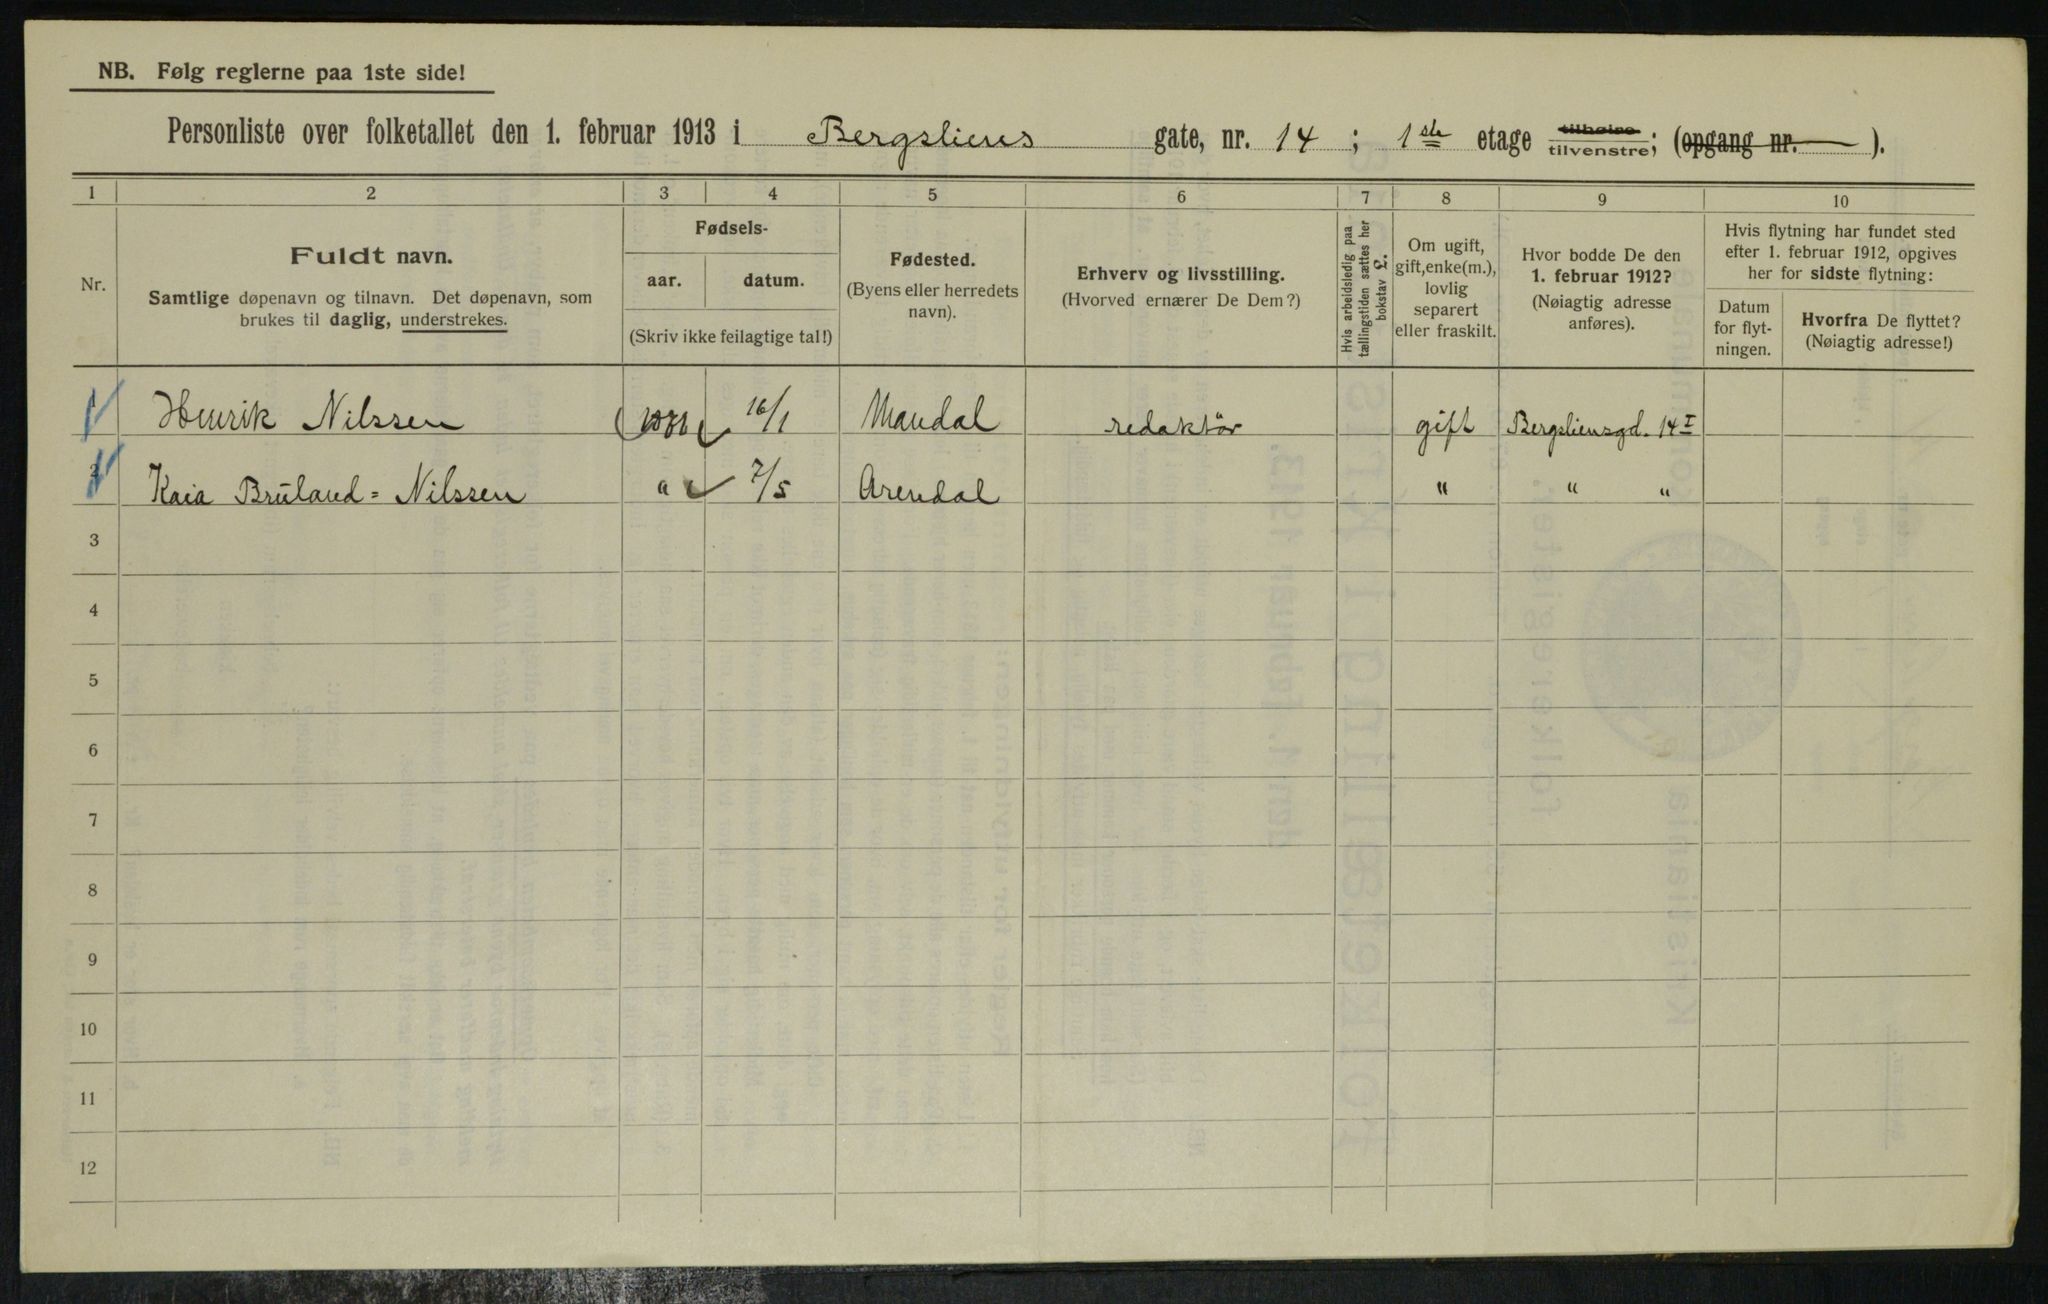 NB. Følg reglerne paa 1ste side!
Personliste over folketallet den 1. februar 1913 i Bergsliens gate, nr. 14 ; 1ste etage tilhøire tilvenstre; (opgang nr. ).
1 2 3 4 5 6 7 8 9 10
Nr.
Fuldt navn.
Samtlige døpenavn og tilnavn. Det døpenavn, som
brukes til daglig, understrekes.
Fødsels-
aar. datum.
(Skriv ikke feilagtige tal!)
Fødested.
(Byens eller herredets
navn).
Erhverv og livsstilling.
(Hvorved ernærer De Dem?)
Hvis arbeidsledig paa
tællingstiden sættes her
bokstav L.
Om ugift,
gift, enke(m.),
lovlig
separert
eller fraskilt.
Hvor bodde De den
1. februar 1912?
(Nøiagtig adresse
anføres).
Hvis flytning har fundet sted
efter 1. februar 1912, opgives
her for sidste flytning:
Datum
for flyt-
ningen.
Hvorfra De flyttet?
(Nøiagtig adresse!)
1 Henrik Nilssen 16/1 Mandal redaktör gift Bergsliensgd. 14 I
2 Kaia Bruland = Nilssen " 7/5 Arendal " " "
3
4
5
6
7
8
9
10
11
12